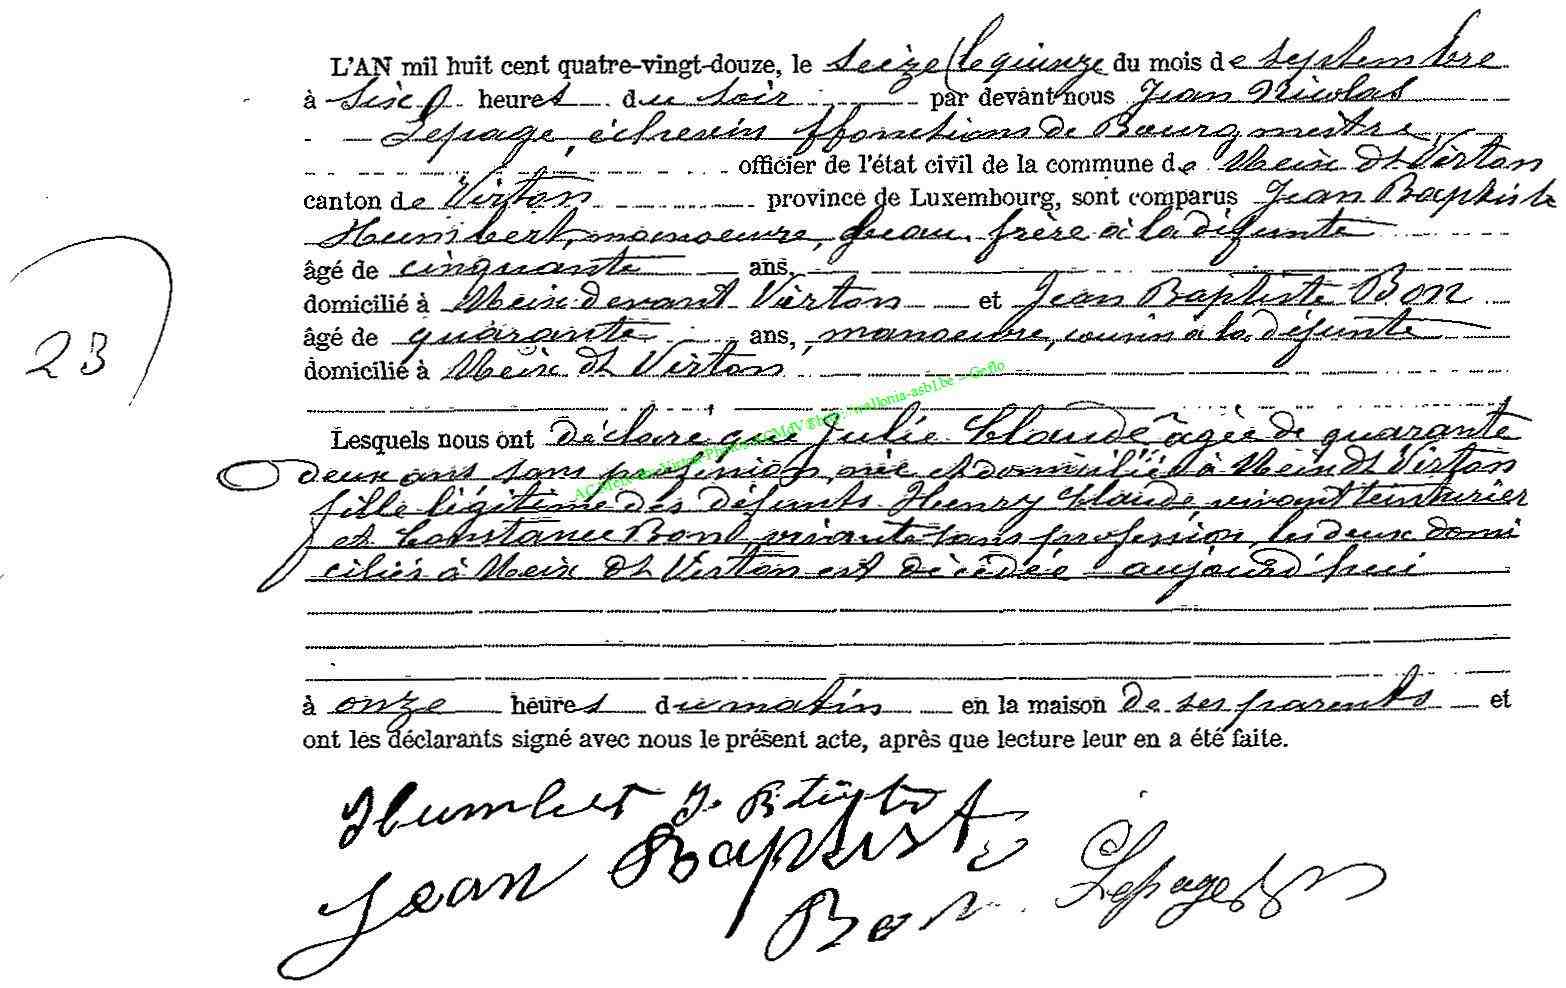 L'AN mil huit cent quatre-vingt-douze, le seize (le quinze du mois de septembre
à six heures du soir par devant nous Jean Nicolas
Lepage, échevin ffonctions de Bourgmestre
officier de l'état civil de la commune de Meix dt Virton
canton de Virton province de Luxembourg, sont comparus Jean Baptiste
Humbert, manoeuvre, beau frère à la défunte
âgé de cinquante ans,
domicilié à Meix-devant Virton et Jean Baptiste Bon
âgé de quarante ans, manoeuvre, cousin à la défunte
23
domicilié à Meix dt Virton
AC Meix-dt-Virton Photos ACMdV @http://wallonia-asbl.be - Geflo
Lesquels nous ont déclaré que Julie Claude âgée de quarante
deux ans sans profession, née et domiciliée à Meix dt Virton
fille légitime des défunts Henry Claude, vivant teinturier
et Constance Bon, vivante sans profession, les deux domi
ciliés à Meix dt Virton est décédée aujourd'hui
à onze heures du matin en la maison de ses parents et
ont les déclarants signé avec nous le présent acte, après que lecture leur en a été faite.
Humbert J. Btiste
Jean Baptiste
Bon Lepage